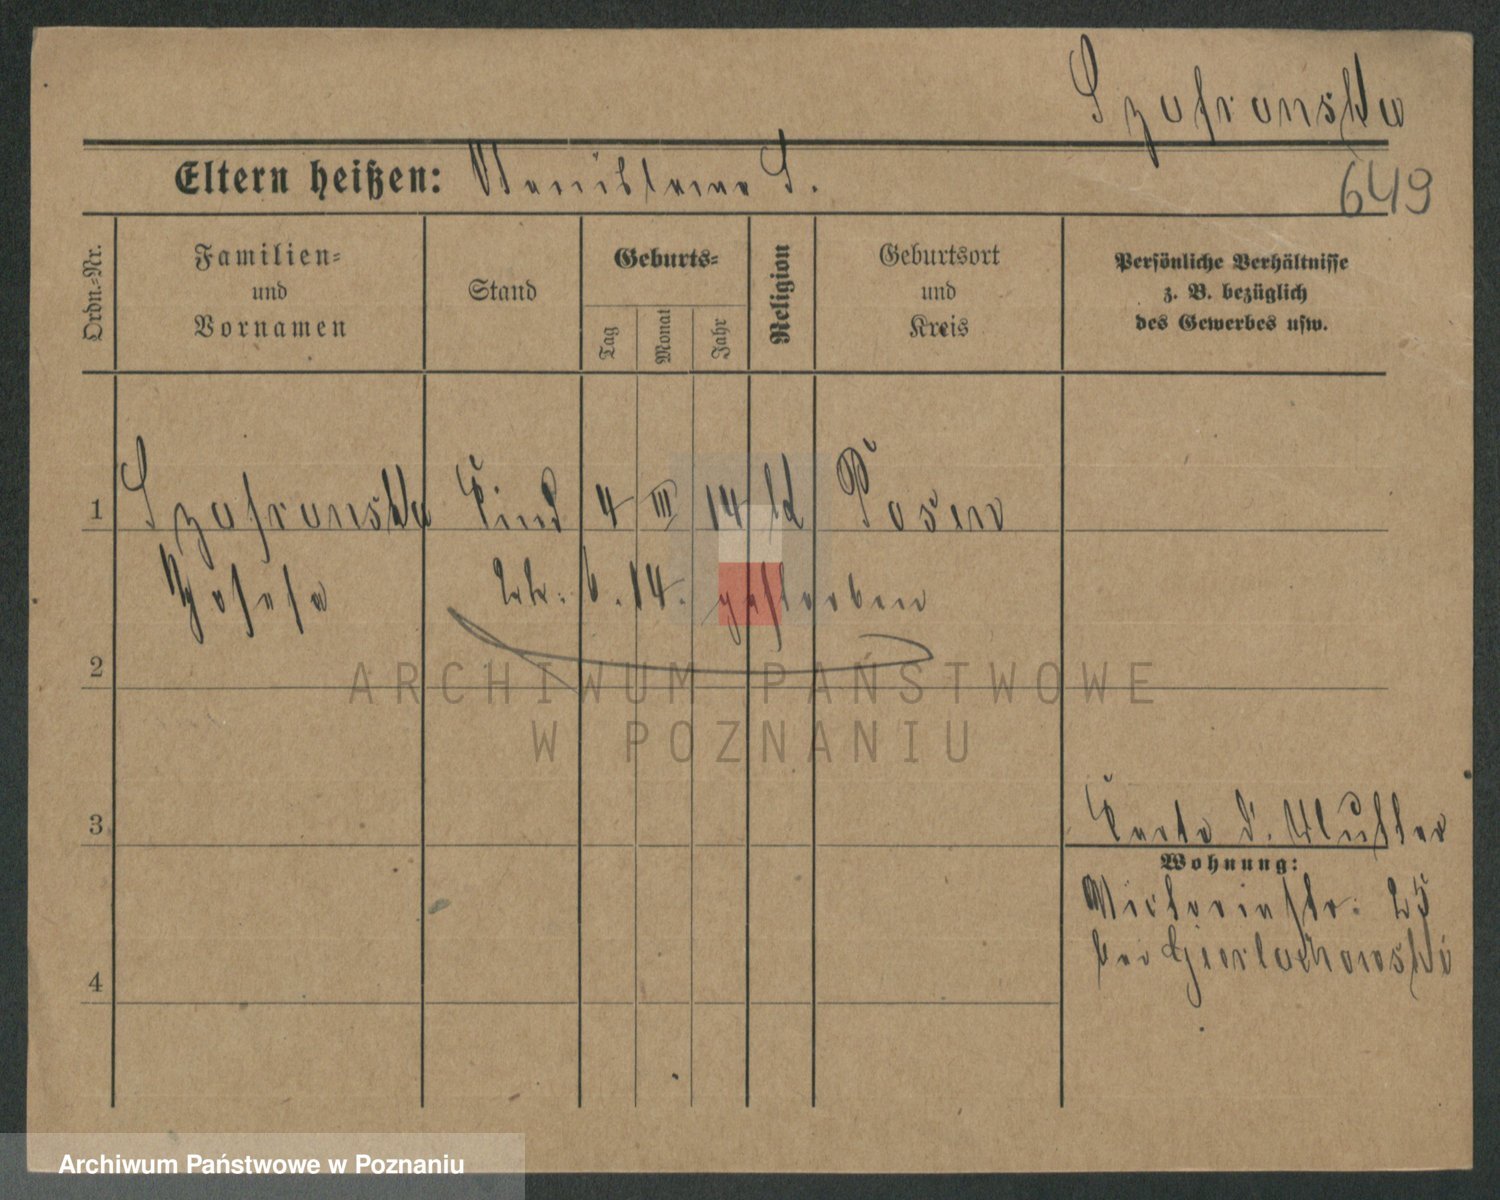 Szafranska
Eltern heißen: Stanislawa S.
649
Ordn.-Nr.
Familien-
und
Vornamen
Stand
Geburts-
Tag
Monat
Jahr
Religion
Geburtsort
und
Kreis
Persönliche Verhältnisse
z. B. bezüglich
des Gewerbes usw.
1 Szafranska Kind 4 III 14 kt Posen
Josefa
6. 14. gestorben
2
ARCHIWUM PAŃSTWOWE
W POZNANIU
3
Karte d. Mutter
Wohnung:
Victoriastr: 25
bei
4
Archiwum Państwowe w Poznaniu